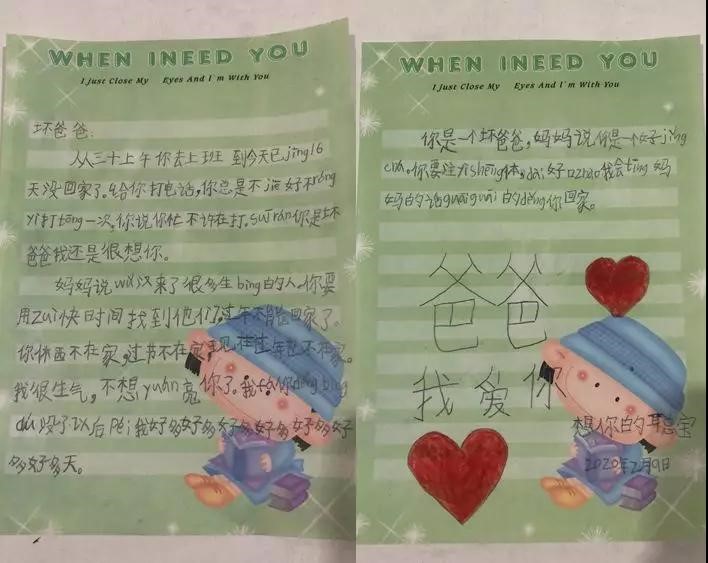 WHEN INEED YOU
I Just Close My Eyes And I'm With You
坏爸爸:
从三十上午你去上班 到今天已jīng16
天没回家了。给你打电话,你总是不jiē好不róng
yì打tōng一次,你说你忙不许在打。suī rán你是坏
爸爸我还是很想你。
妈妈说wǔ汉来了很多生bìng的人。你要
用zuì快时间找到他们,过年不能回家了。
你休西不在家,过节不在家,现在过年也不在家。
我很生气,不想yuán亮你了。我fá你děng bìng
dú没了以后péi我好多好多好多好多好多好多好
多好多天。
WHEN INEED YOU
I Just Close My Eyes And I'm With You
你是一个坏爸爸,妈妈说你是一个好jǐng
chá。你要注yì shēng体,dài好口zhào我会tīng妈
妈的话guāi guāi的děng你回家。
爸爸
我爱你
想你的聪宝
2020年2月9日